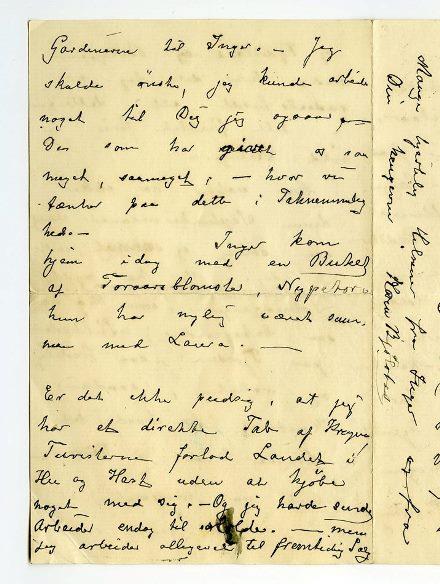 Gardinerne til Inger. — Jeg
skulde ønske, jeg kunde arbeide
noget til Dig jeg ogsaa, —
Du som har givet os saa
meget, saameget, — hvor vi
tænker paa dette i Taknemmelig
hed. — Inger kom
hjem idag med en Buket
af Foraarsblomster, Nypetorn
hun har nylig været sam-
men med Laura. —
Er det ikke pudsig, at jeg
har et direkte Tab af Krigen,
Turisterne forlod Landet i
Hu og Hast uden at kjøbe
noget med sig. — Og jeg havde
Arbeider endog til — men
jeg arbeider alligevel til fremtidig Salg
Mange hjertelig Hilsener fra Inger og fra
Din hengivne